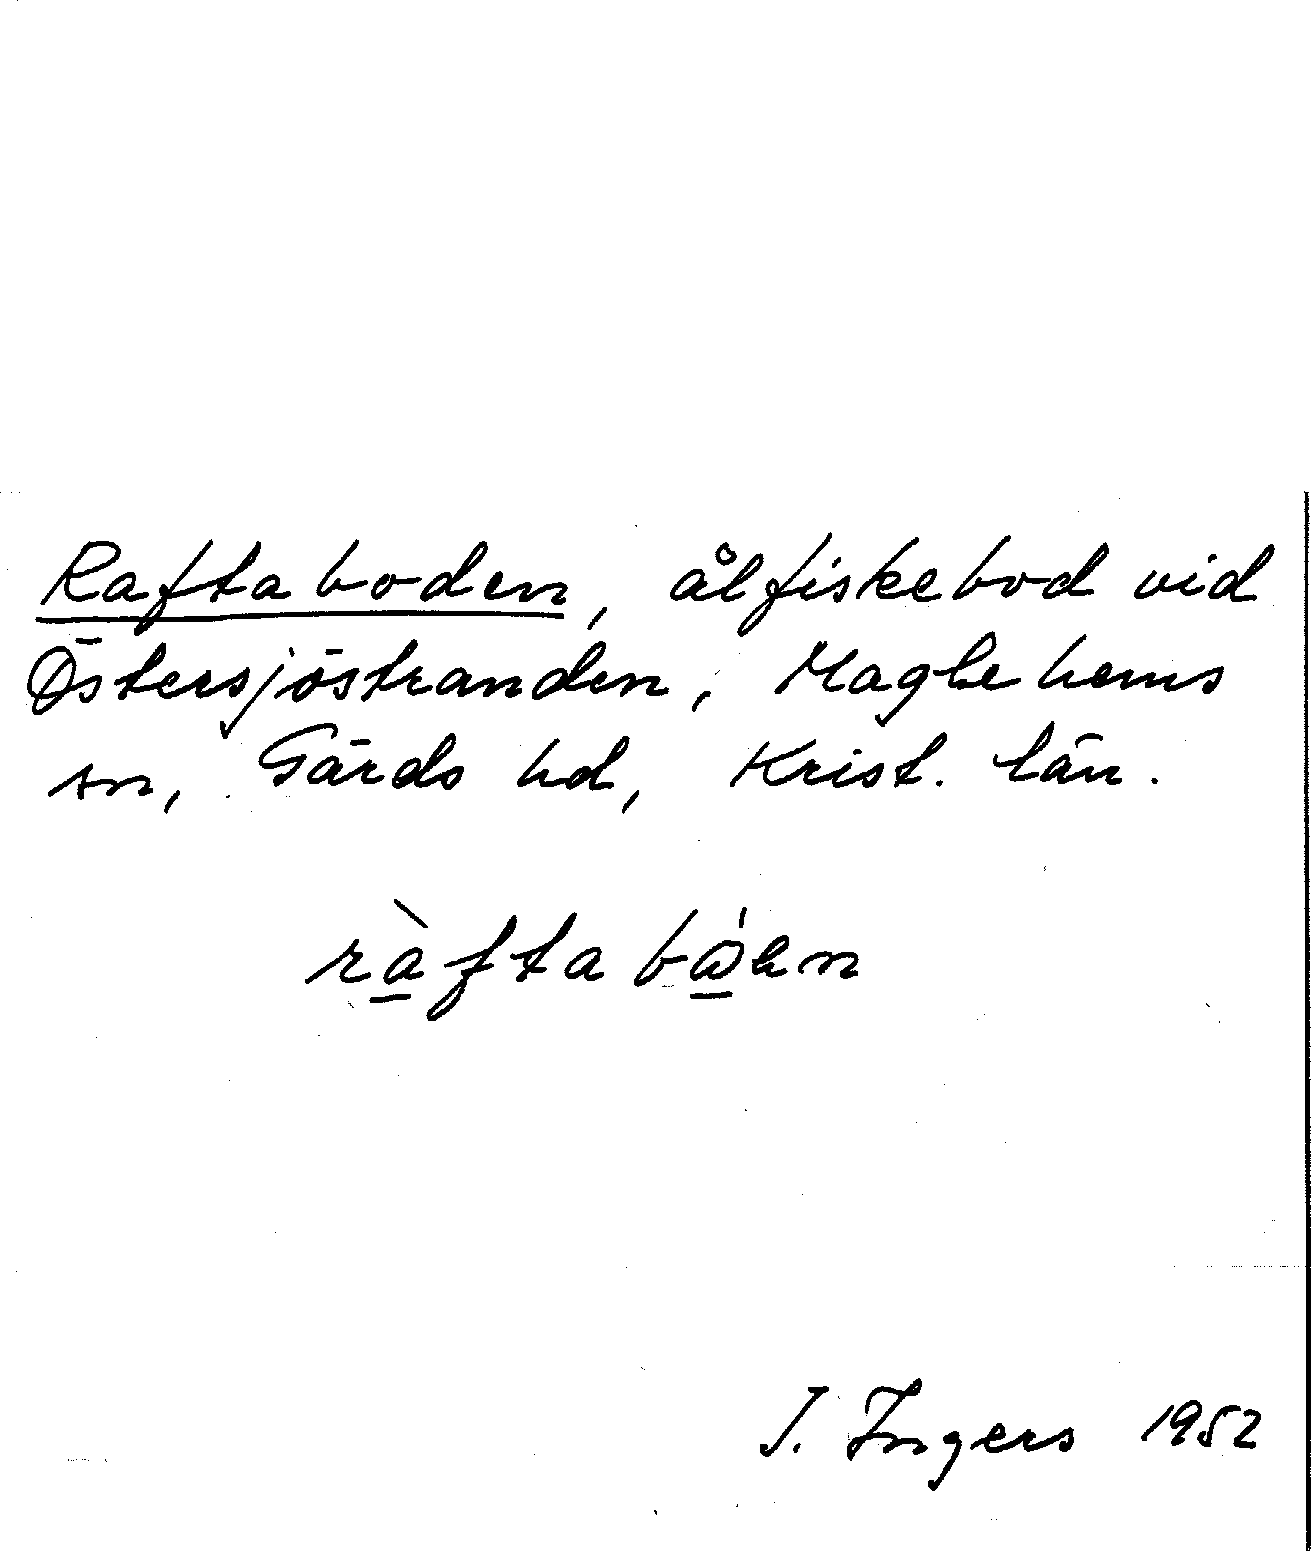 Raftaboden, ålfiskebod vid
Östersjöstranden, Maglehems
sn, Gärds hd, Krist. län.
ràftabὼen
I. Ingers 1952